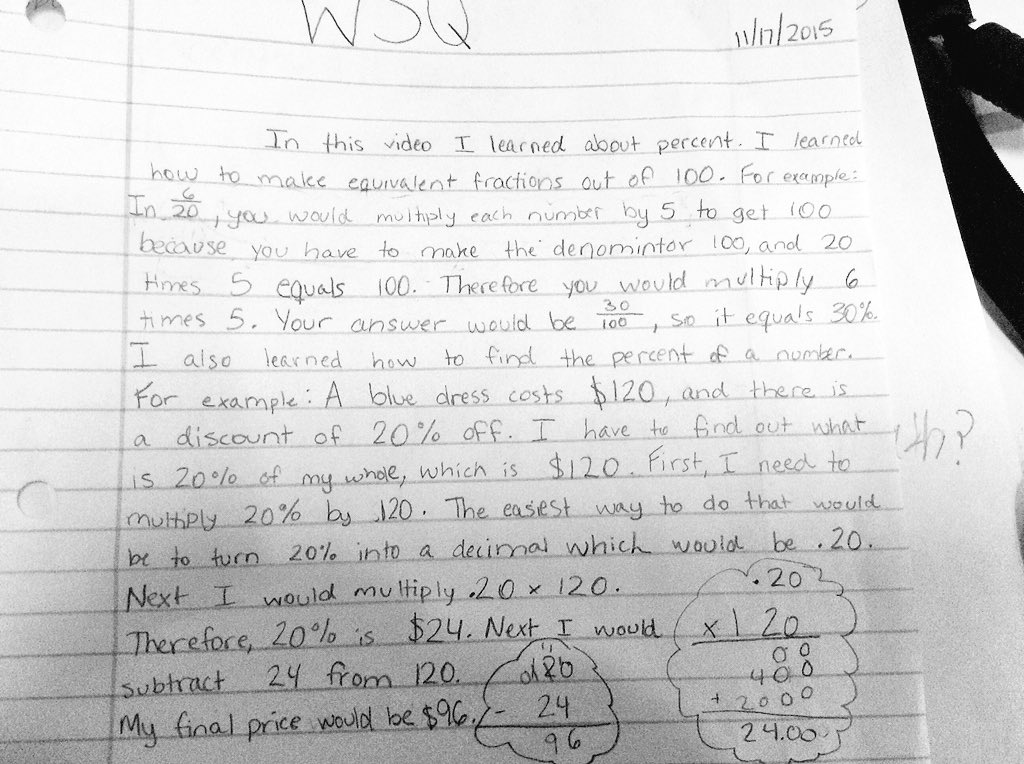 WSQ
11/17/2015
In this video I learned about percent. I learned
how to make equivalent fractions out of 100. For example:
In 6/20, you would multiply each number by 5 to get 100
because you have to make the denomintor 100, and 20
times 5 equals 100. Therefore you would multiply 6
times 5. Your answer would be 30/100, so it equals 30%.
I also learned how to find the percent of a number.
For example: A blue dress costs $120, and there is
a discount of 20% off. I have to find out what
is 20% of my whole, which is $120. First, I need to
multiply 20% by 120. The easiest way to do that would
be to turn 20% into a decimal which would be .20.
Next I would multiply .20 x 120.
Therefore, 20% is $24. Next I would
subtract 24 from 120.
My final price would be $96.
120
- 24
96
.20
x 120
00
400
+ 2000
24.00